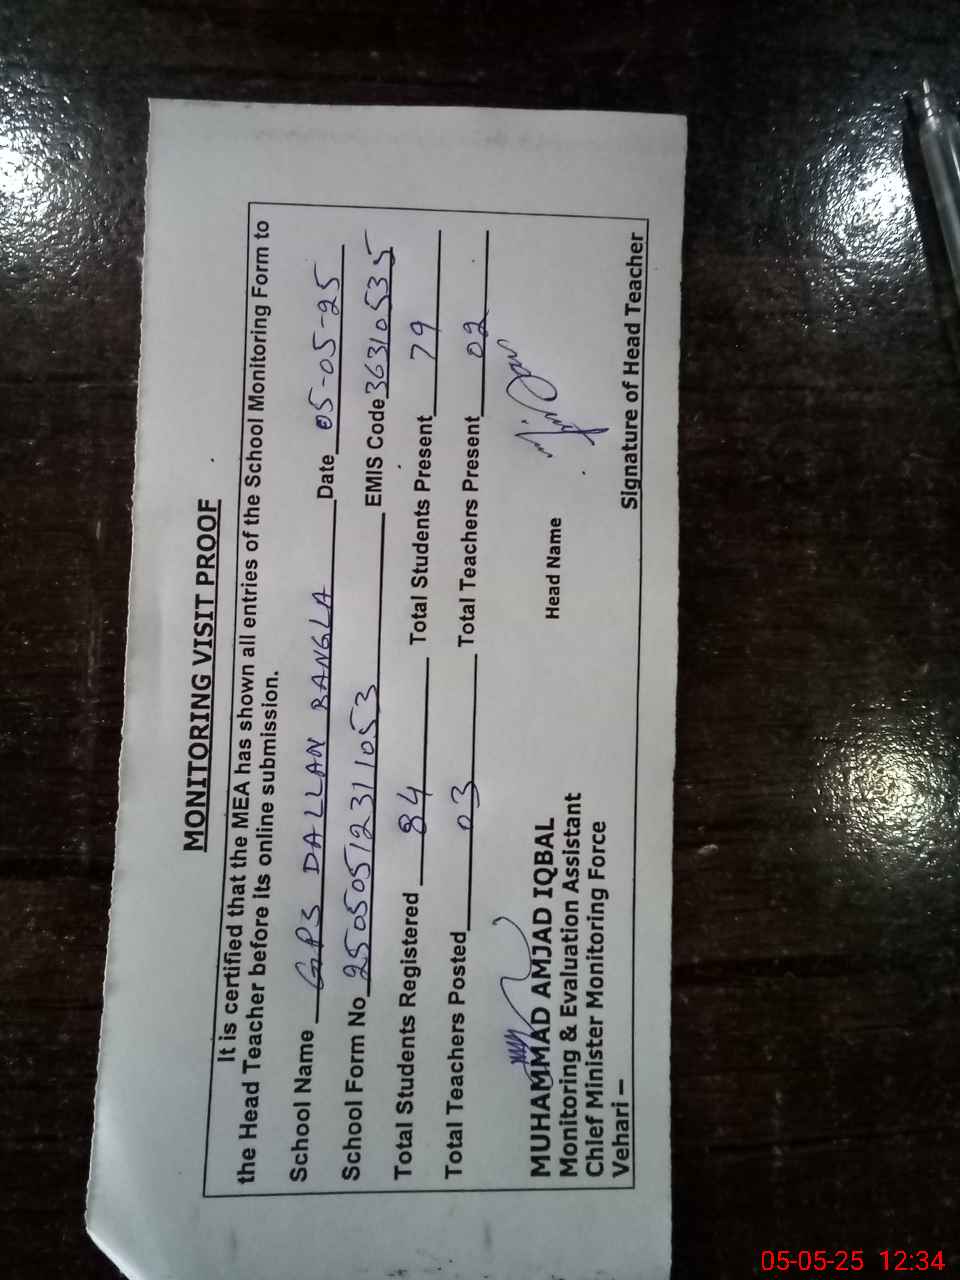 MONITORING VISIT PROOF
It is certified that the MEA has shown all entries of the School Monitoring Form to
the Head Teacher before its online submission.
School Name GPS DALLAN BANGLA Date 05-05-25
School Form No 25050512311053 EMIS Code 36310535
Total Students Registered 84 Total Students Present 79
Total Teachers Posted 03 Total Teachers Present 02
MUHAMMAD AMJAD IQBAL
Monitoring & Evaluation Assistant
Chief Minister Monitoring Force
Vehari –
Head Name
Signature of Head Teacher
05-05-25 12:34